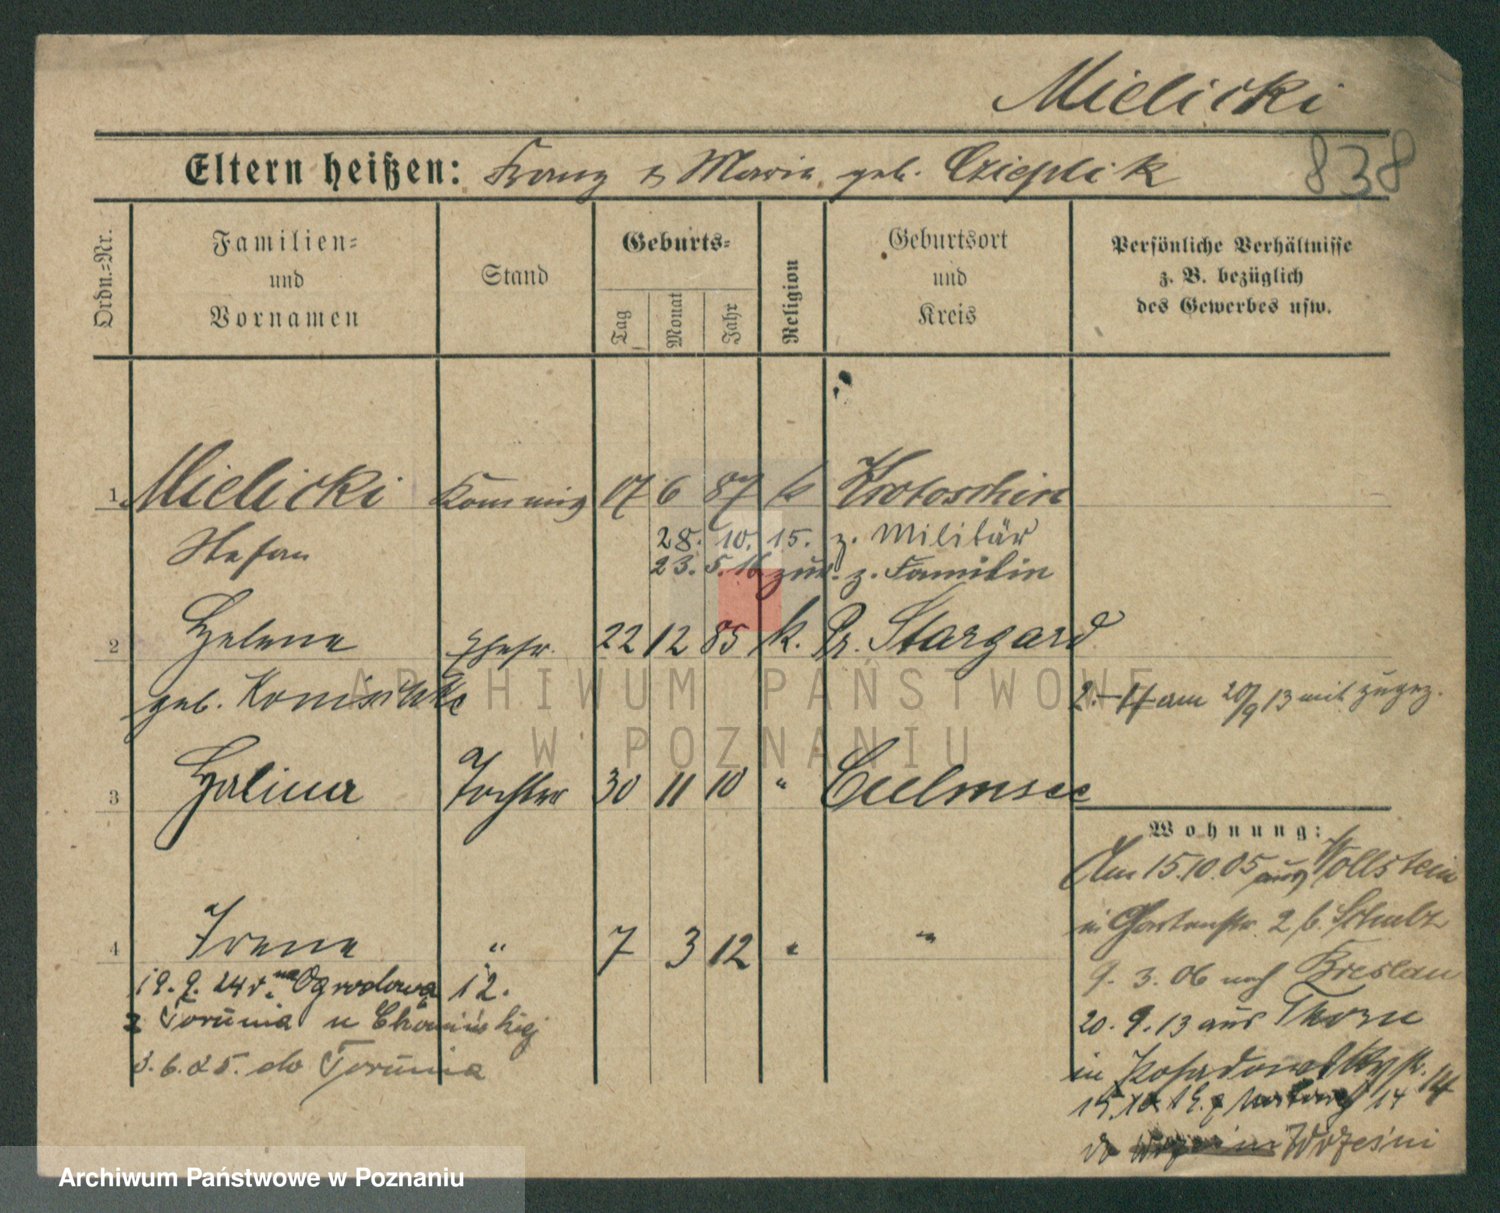 Mielicki
838
Eltern heißen: Franz & Maria geb. Czieplik
Ordn.-Nr.
Familien- und Vornamen
Stand
Geburts-
Tag
Monat
Jahr
Religion
Geburtsort und Kreis
Persönliche Verhältnisse z. B. bezüglich des Gewerbes usw.
1 Mielicki 17 6 87 k Krotoschin
Stefan 28. 10. 15. z. Militär
23. 5. 16 zur. z. Familie
2 Helene Ehefr. 22 12 85 k. Pr. Stargard
geb.
2.-4 am 20/9 13 mit zugez.
3 Halina Tochter 30 11 10 " Culmsee
4 Irena " 7 3 12 " "
19. 9. 24 r. na Ogrodową 12.
z Torunia u
3. 6. 25. do Torunia
Wohnung:
Am 15.10.05 aus Wollstein
in Gartenstr. 2 b. Schulz
9. 3. 06 nach Breslau
20. 9. 13 aus Thorn
in 14
14
do Wrześni
ARCHIWUM PAŃSTWOWE
W POZNANIU
Archiwum Państwowe w Poznaniu